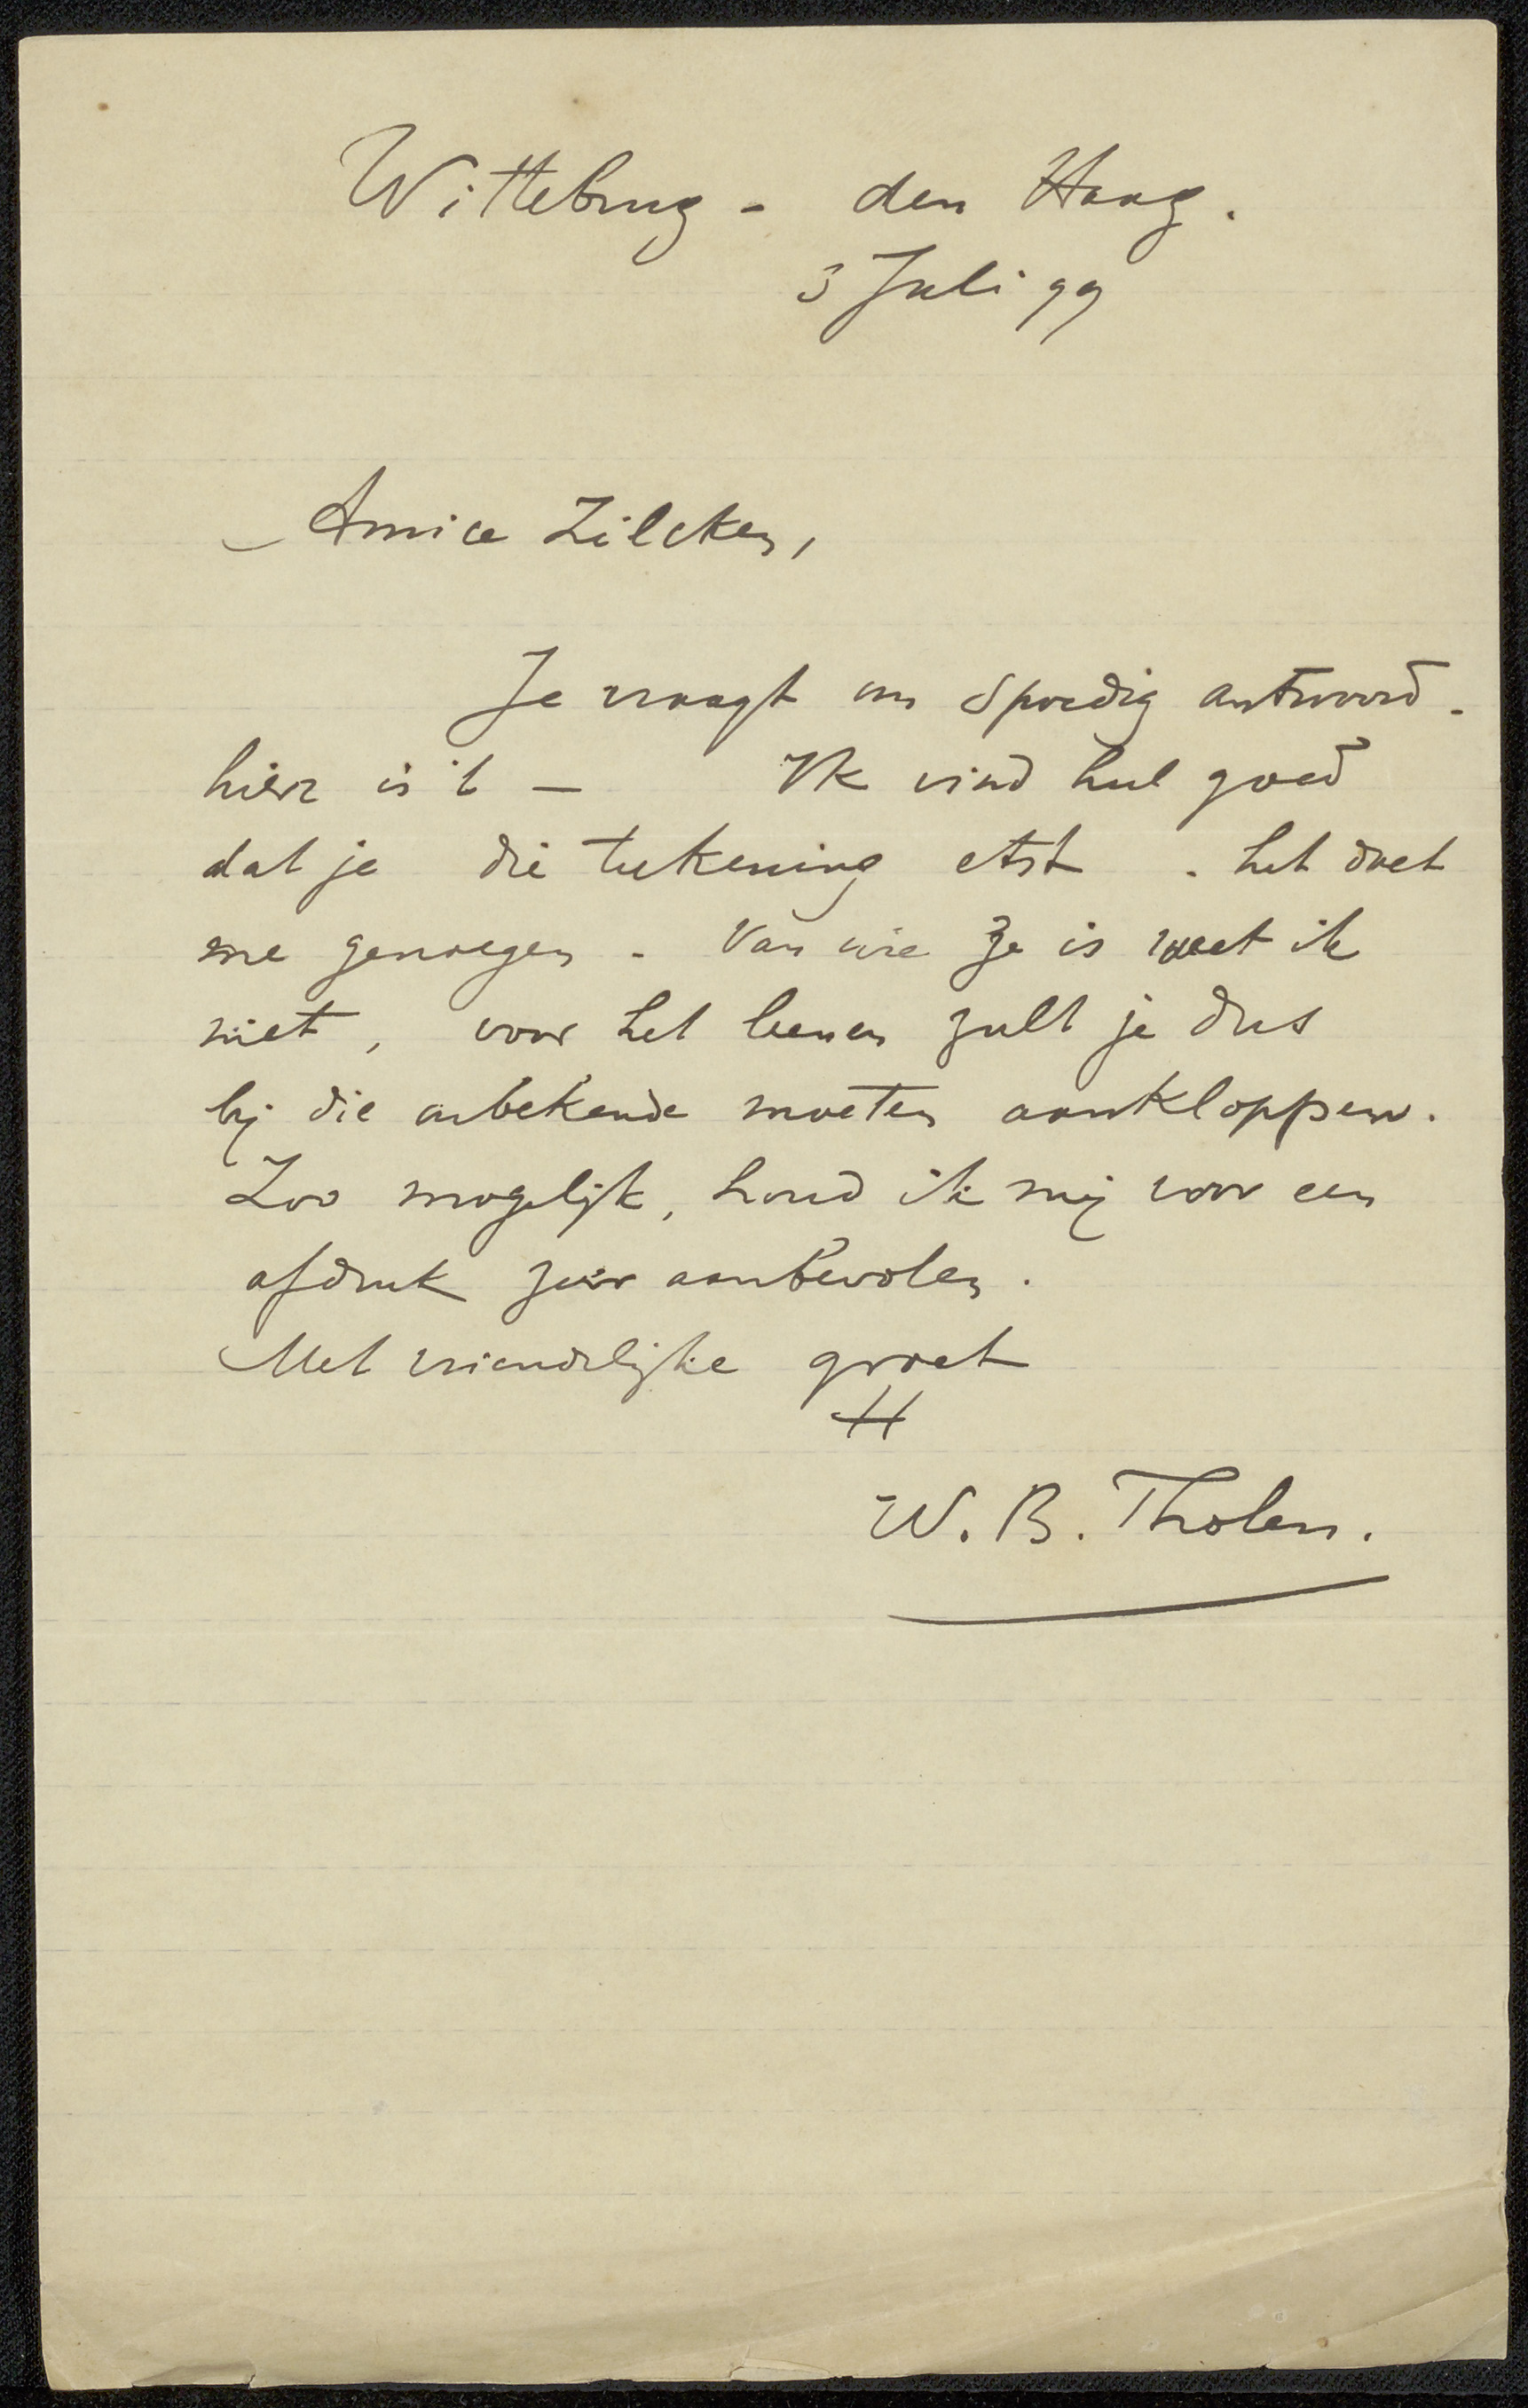 Wittebrug - den Haag.
3 Juli 99
Amice Zilcken,
Je vraagt om spoedig antwoord -
hier is 't — Ik vind heel goed
dat je die teekening etst. het doet
me genoegen - Van wie ze is weet ik
niet, voor het leenen zult je dus
bij die onbekende moeten aankloppen.
Zoo mogelijk, houd ik mij voor een
afdruk zeer aanbevolen.
Met vriendelijke groet
tt
W. B. Tholen.